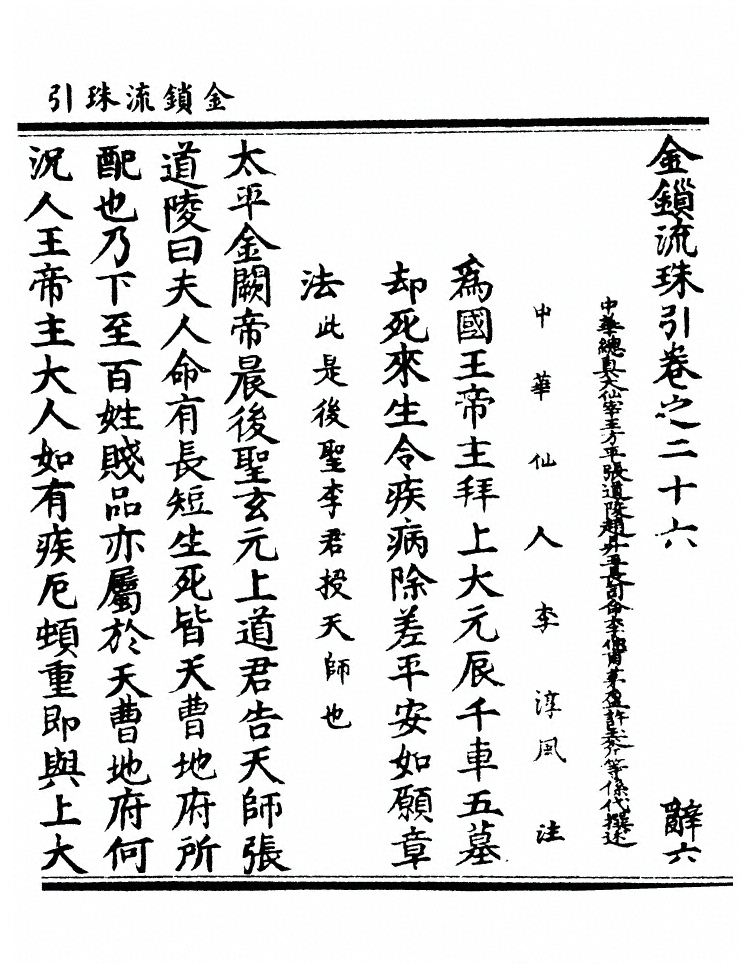 金鎖流珠引
金鎖流珠引卷之二十六　辭六
中華總真大仙宰王方平張道陵趙昇王長司命茅盈許等係代撰述
中華仙人李淳風注
為國王帝主拜上大元辰千車五墓
却死來生令疾病除差平安如願章
法此是後聖李君授天師也
太平金闕帝晨後聖玄元上道君告天師張
道陵曰夫人命有長短生死皆天曹地府所
配也乃下至百姓賤品亦屬於天曹地府何
況人王帝主大人如有疾厄頓重即與上大